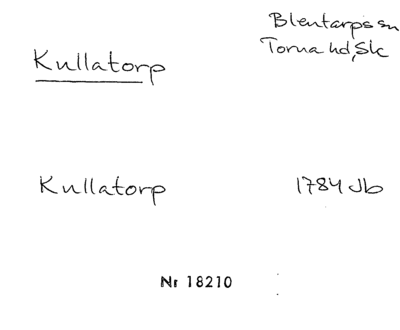 Blentarps sn
Torna hd, Sk
Kullatorp
Kullatorp 1784 Jb
Nr 18210